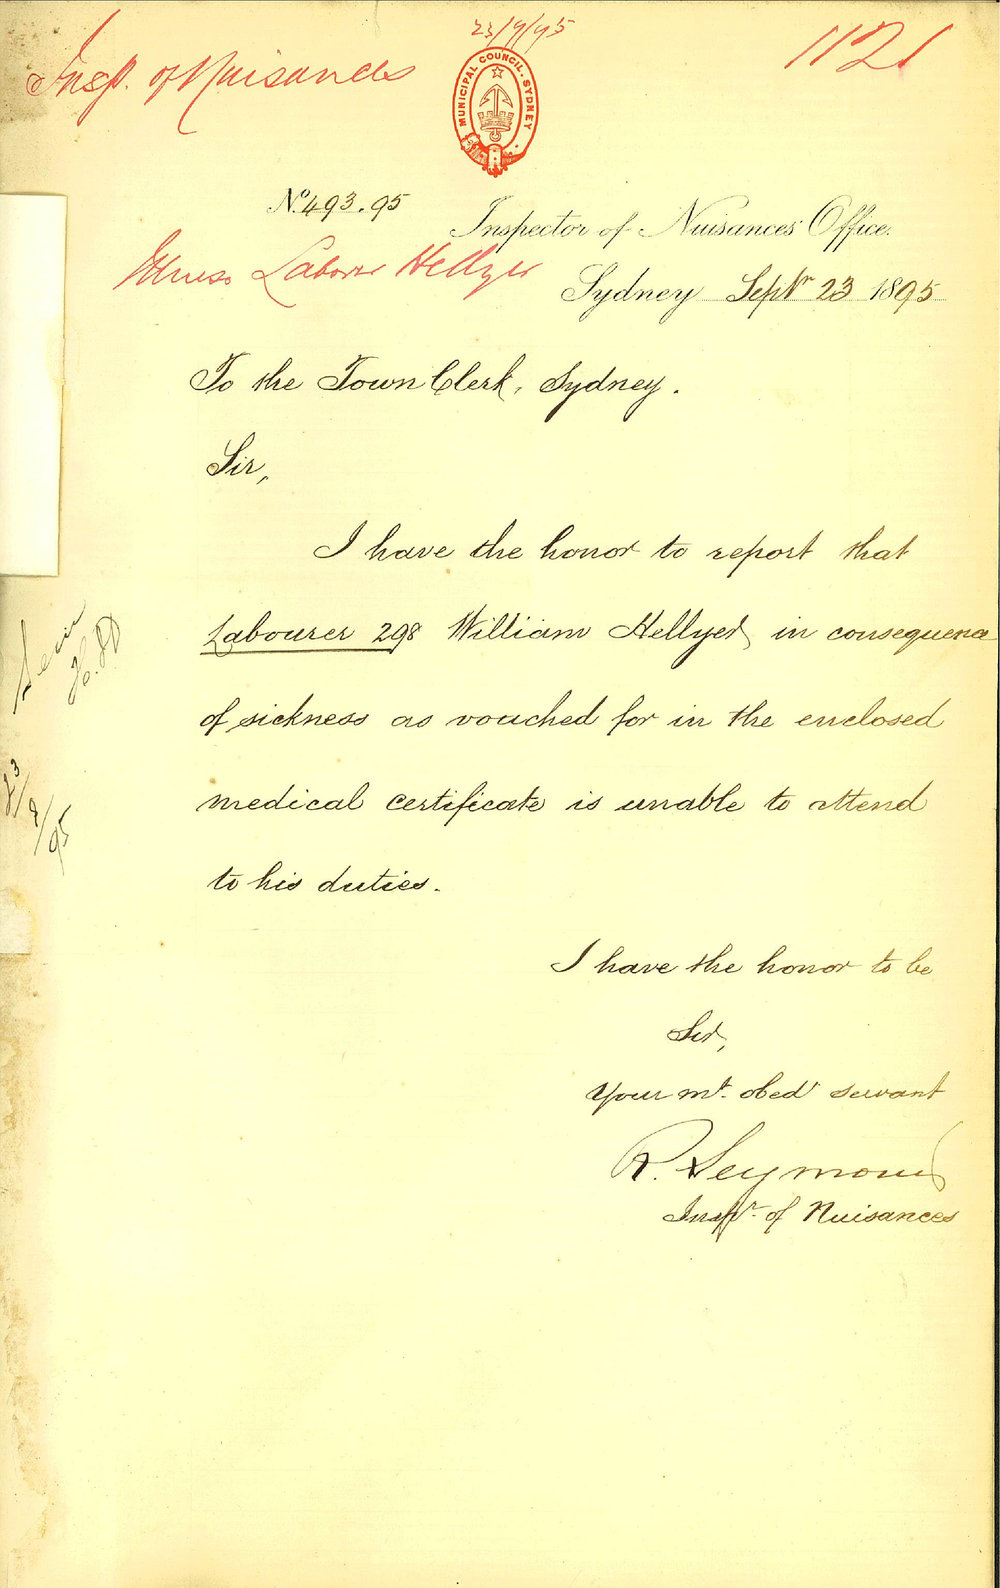 23/9/95
Insp. of Nuisances
1121
MUNICIPAL COUNCIL. SYDNEY
No. 493.95
Inspector of Nuisances Office.
Illness Laborer Hellyer
Sydney Septr 23 1895
To the Town Clerk, Sydney.
Sir,
I have the honor to report that
Labourer 298 William Hellyer, in consequence
of sickness as vouched for in the enclosed
medical certificate is unable to attend
to his duties.
Seen
23/9/95
I have the honor to be
Sir,
Your mt. obedt servant
R. Seymour
Inspr. of Nuisances